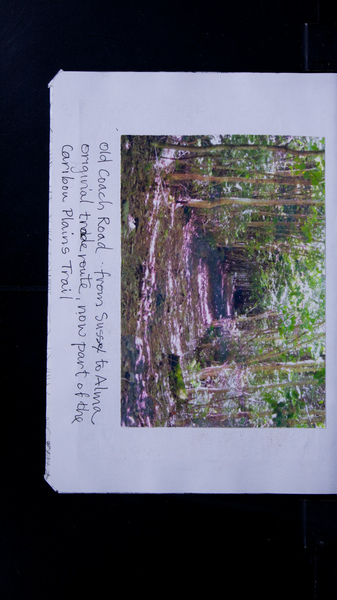 Old Coach Road - from Sussex to Alma
original trade route, now part of the
Caribou Plains Trail